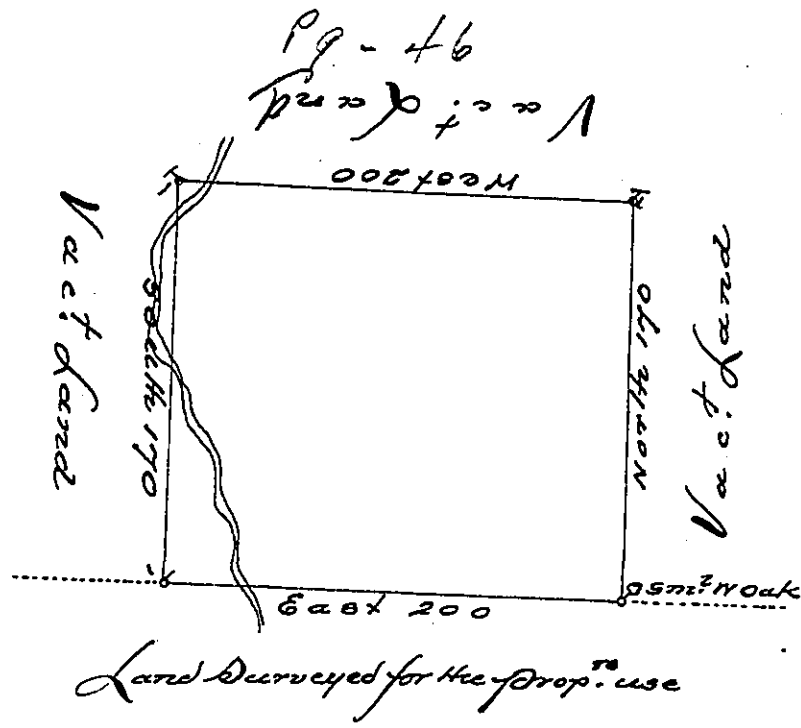 Pg - 46
Vac.t Land
West 200
Vac.t Land
South 170
North 170
Vac.t Land
a sm.l W Oak
East 200
Land Surveyed for the Prop.rs use